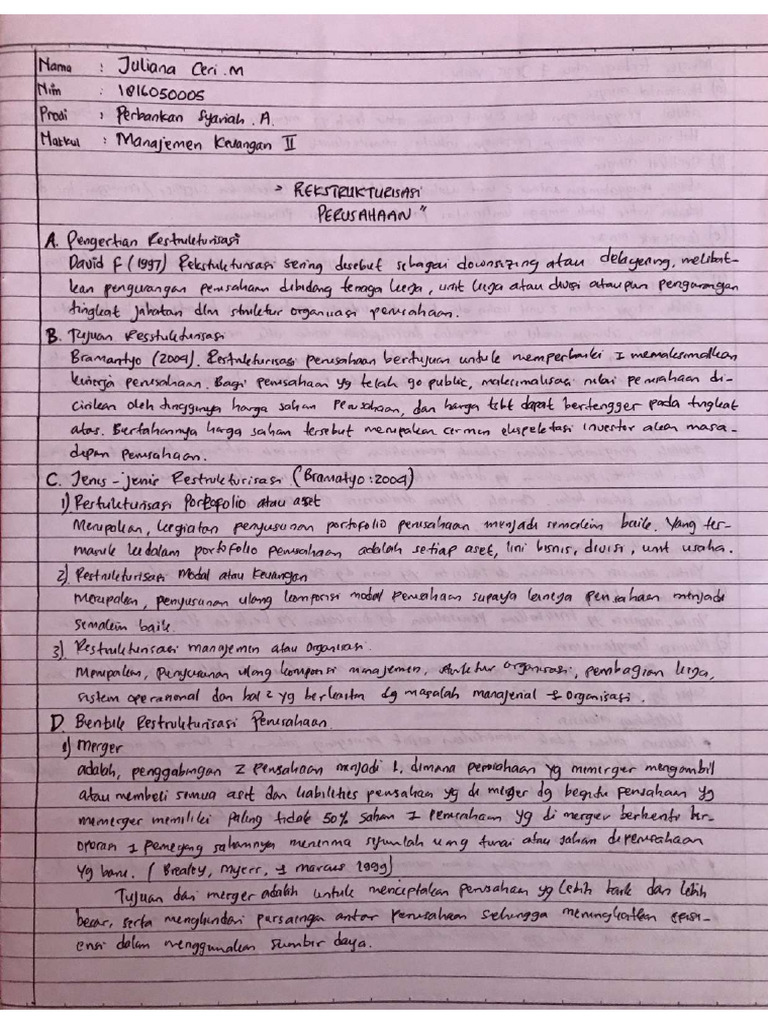 Nama : Juliana Ceri .M
Nim : 1816050005
Prodi : Perbankan Syariah .A.
Matkul : Manajemen Keuangan II
" REKSTRUKTURISASI
PERUSAHAAN "
A. Pengertian Restrukturisasi
David F (1997) Rekstrukturisasi sering disebut sebagai downsizing atau delayering, melibat-
kan pengurangan perusahaan dibidang tenaga kerja, unit kerja atau divisi ataupun pengurangan
tingkat jabatan dlm struktur organisasi perusahaan.
B. Tujuan Resstukturisasi
Bramantyo (2009). Restrukturisasi perusahaan bertujuan untuk memperbaiki & memaksimalkan
kinerja perusahaan. Bagi perusahaan yg telah go public, maksimalisasi nilai perusahaan di-
cirikan oleh tingginya harga saham perusahaan, dan harga tsbt dapat bertengger pada tingkat
atas. Bertahannya harga saham tersebut merupakan cermen ekspektasi investor akan masa-
depan perusahaan.
C. Jenis-jenis Restrukturisasi (Bramatyo : 2009)
1) Restukturisasi Portofolio atau aset
Merupakan, kegiatan penyusunan portofolio perusahaan menjadi semakin baik. Yang ter-
masuk kedalam portofolio perusahaan adalah setiap aset, lini bisnis, divisi, unit usaha.
2) Restrukturisasi Modal atau Keuangan
Merupakan, penyusunan ulang komposisi modal perusahaan supaya kinerja perusahaan menjadi
semakin baik.
3) Restrukturisasi manajemen atau Organisasi.
Merupakan, penyusunan ulang komposisi manajemen, struktur organisasi, pembagian kerja,
sistem operasional dan hal2 yg berkaitan dg masalah manajerial & organisasi.
D. Bentuk Restrukturisasi Perusahaan.
1) Merger
adalah, penggabingan 2 perusahaan menjadi 1, dimana perusahaan yg memerger mengambil
atau membeli semua aset dan liabilities perusahaan yg di merger dg begitu perusahaan yg
memerger memiliki paling tidak 50% saham & perusahaan yg di merger berhenti ber-
operasi & pemegang sahamnya menerima sejumlah uang tunai atau saham diperusahaan
yg baru. (Brealey, Myers, & Marcus 1999)
Tujuan dari merger adalah untuk menciptakan perusahaan yg lebih baik dan lebih
besar, serta menghindari persaingan antar perusahaan sehingga meningkatkan efisi-
ensi dalam menggunakan sumber daya.